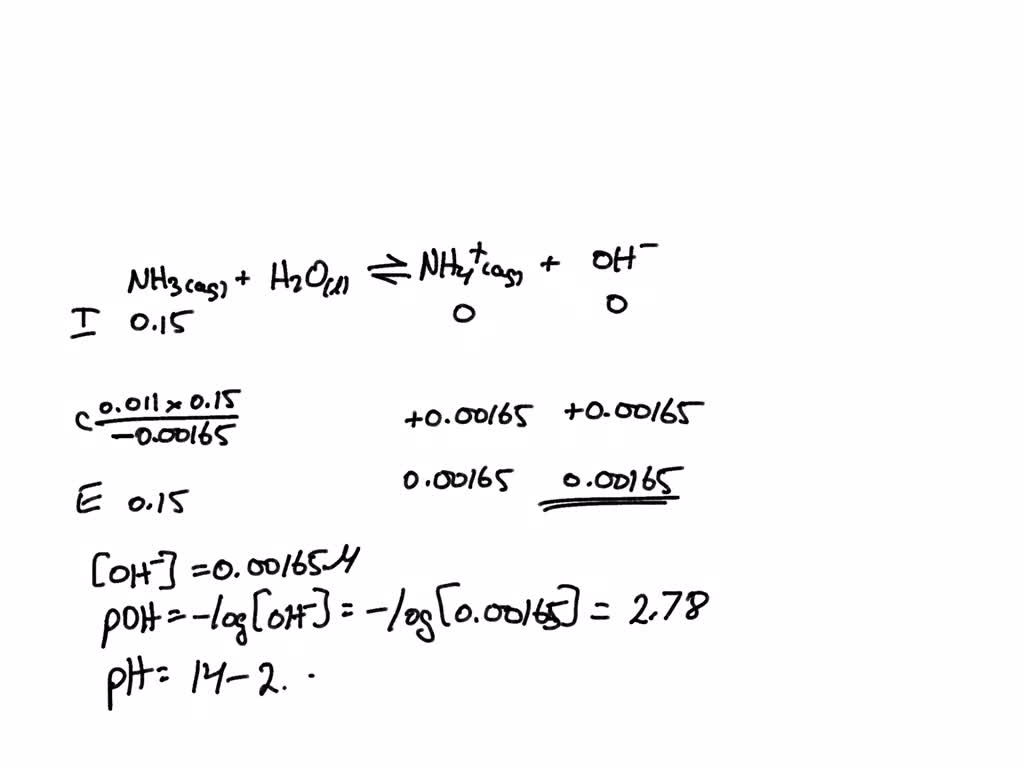 NH₃(aq) + H₂O(l) ⇌ NH₄⁺(aq) + OH⁻
I 0.15 0 0
C 0.011 × 0.15 / −0.00165 +0.00165 +0.00165
E 0.15 0.00165 0.00165
[OH⁻] = 0.00165M
pOH = −log[OH⁻] = −log[0.00165] = 2.78
pH = 14 − 2.